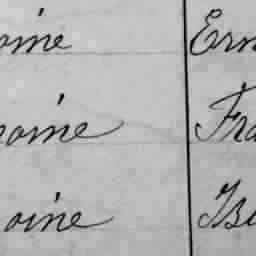 oine Ern
oine Fra
oine Be